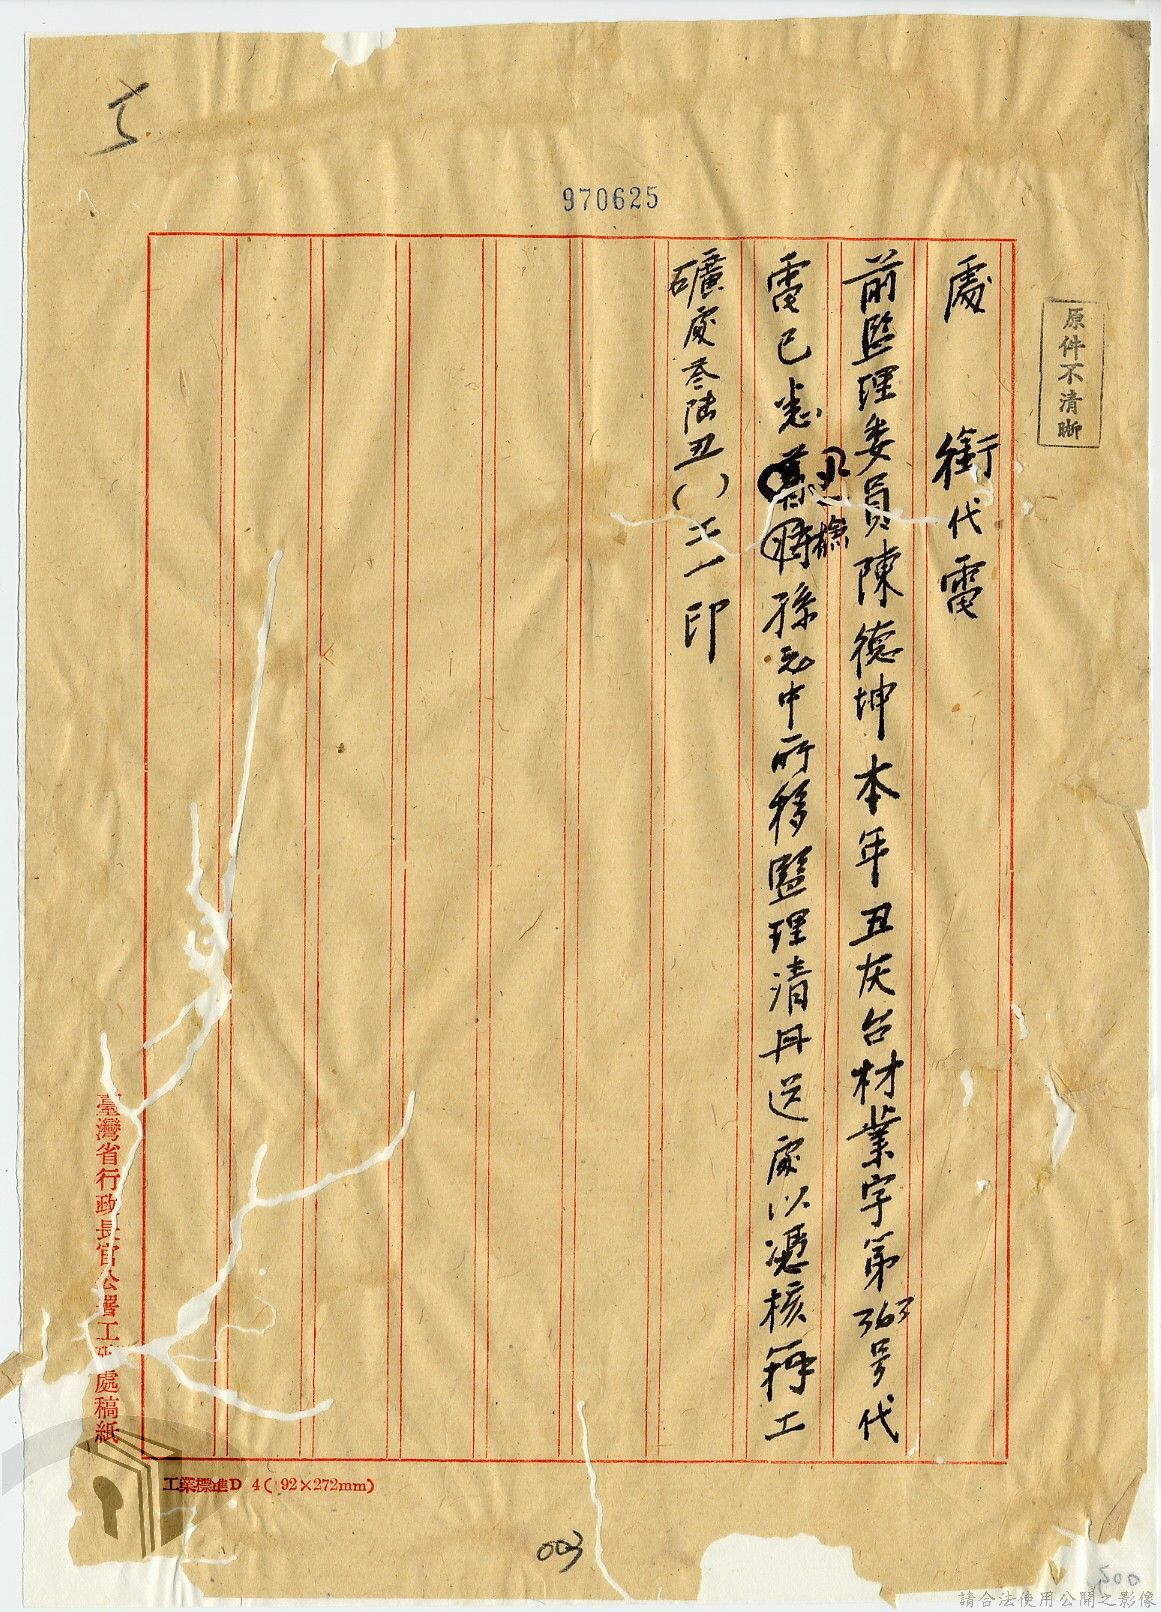 970625
原件不清晰
處 銜代電
前監理委員陳德坤本年丑灰台材業字第363号代
電已悉孫元中所移監理清冊送處以憑核辦工
礦處叁陸丑()工一印
臺灣省行政長官公署工處稿紙
工業標準D 4( 92×272mm)
003
請合法使用公開之影像